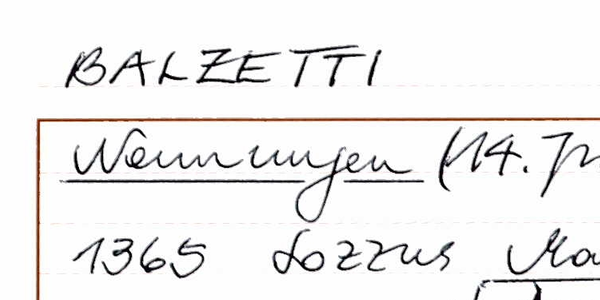 BALZETTI
Nennungen (14. Jh
1365 Lozzus Ma